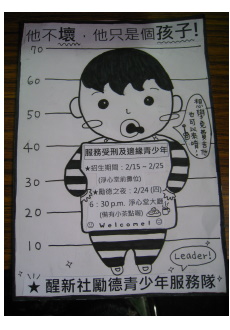 他不壞，他只是個孩子!
70
60
50
40
30
20
10
想學免費吉他
也可以來唷!
服務受刑及邊緣青少年
★招生期間：2/15 ~ 2/25
(淨心堂前攤位)
★勵德之夜：2/24 (四)
6：30 p.m. 淨心堂大廳
(備有小茶點喔)
Welcome!
Leader!
★ 醒新社勵德青少年服務隊 ★